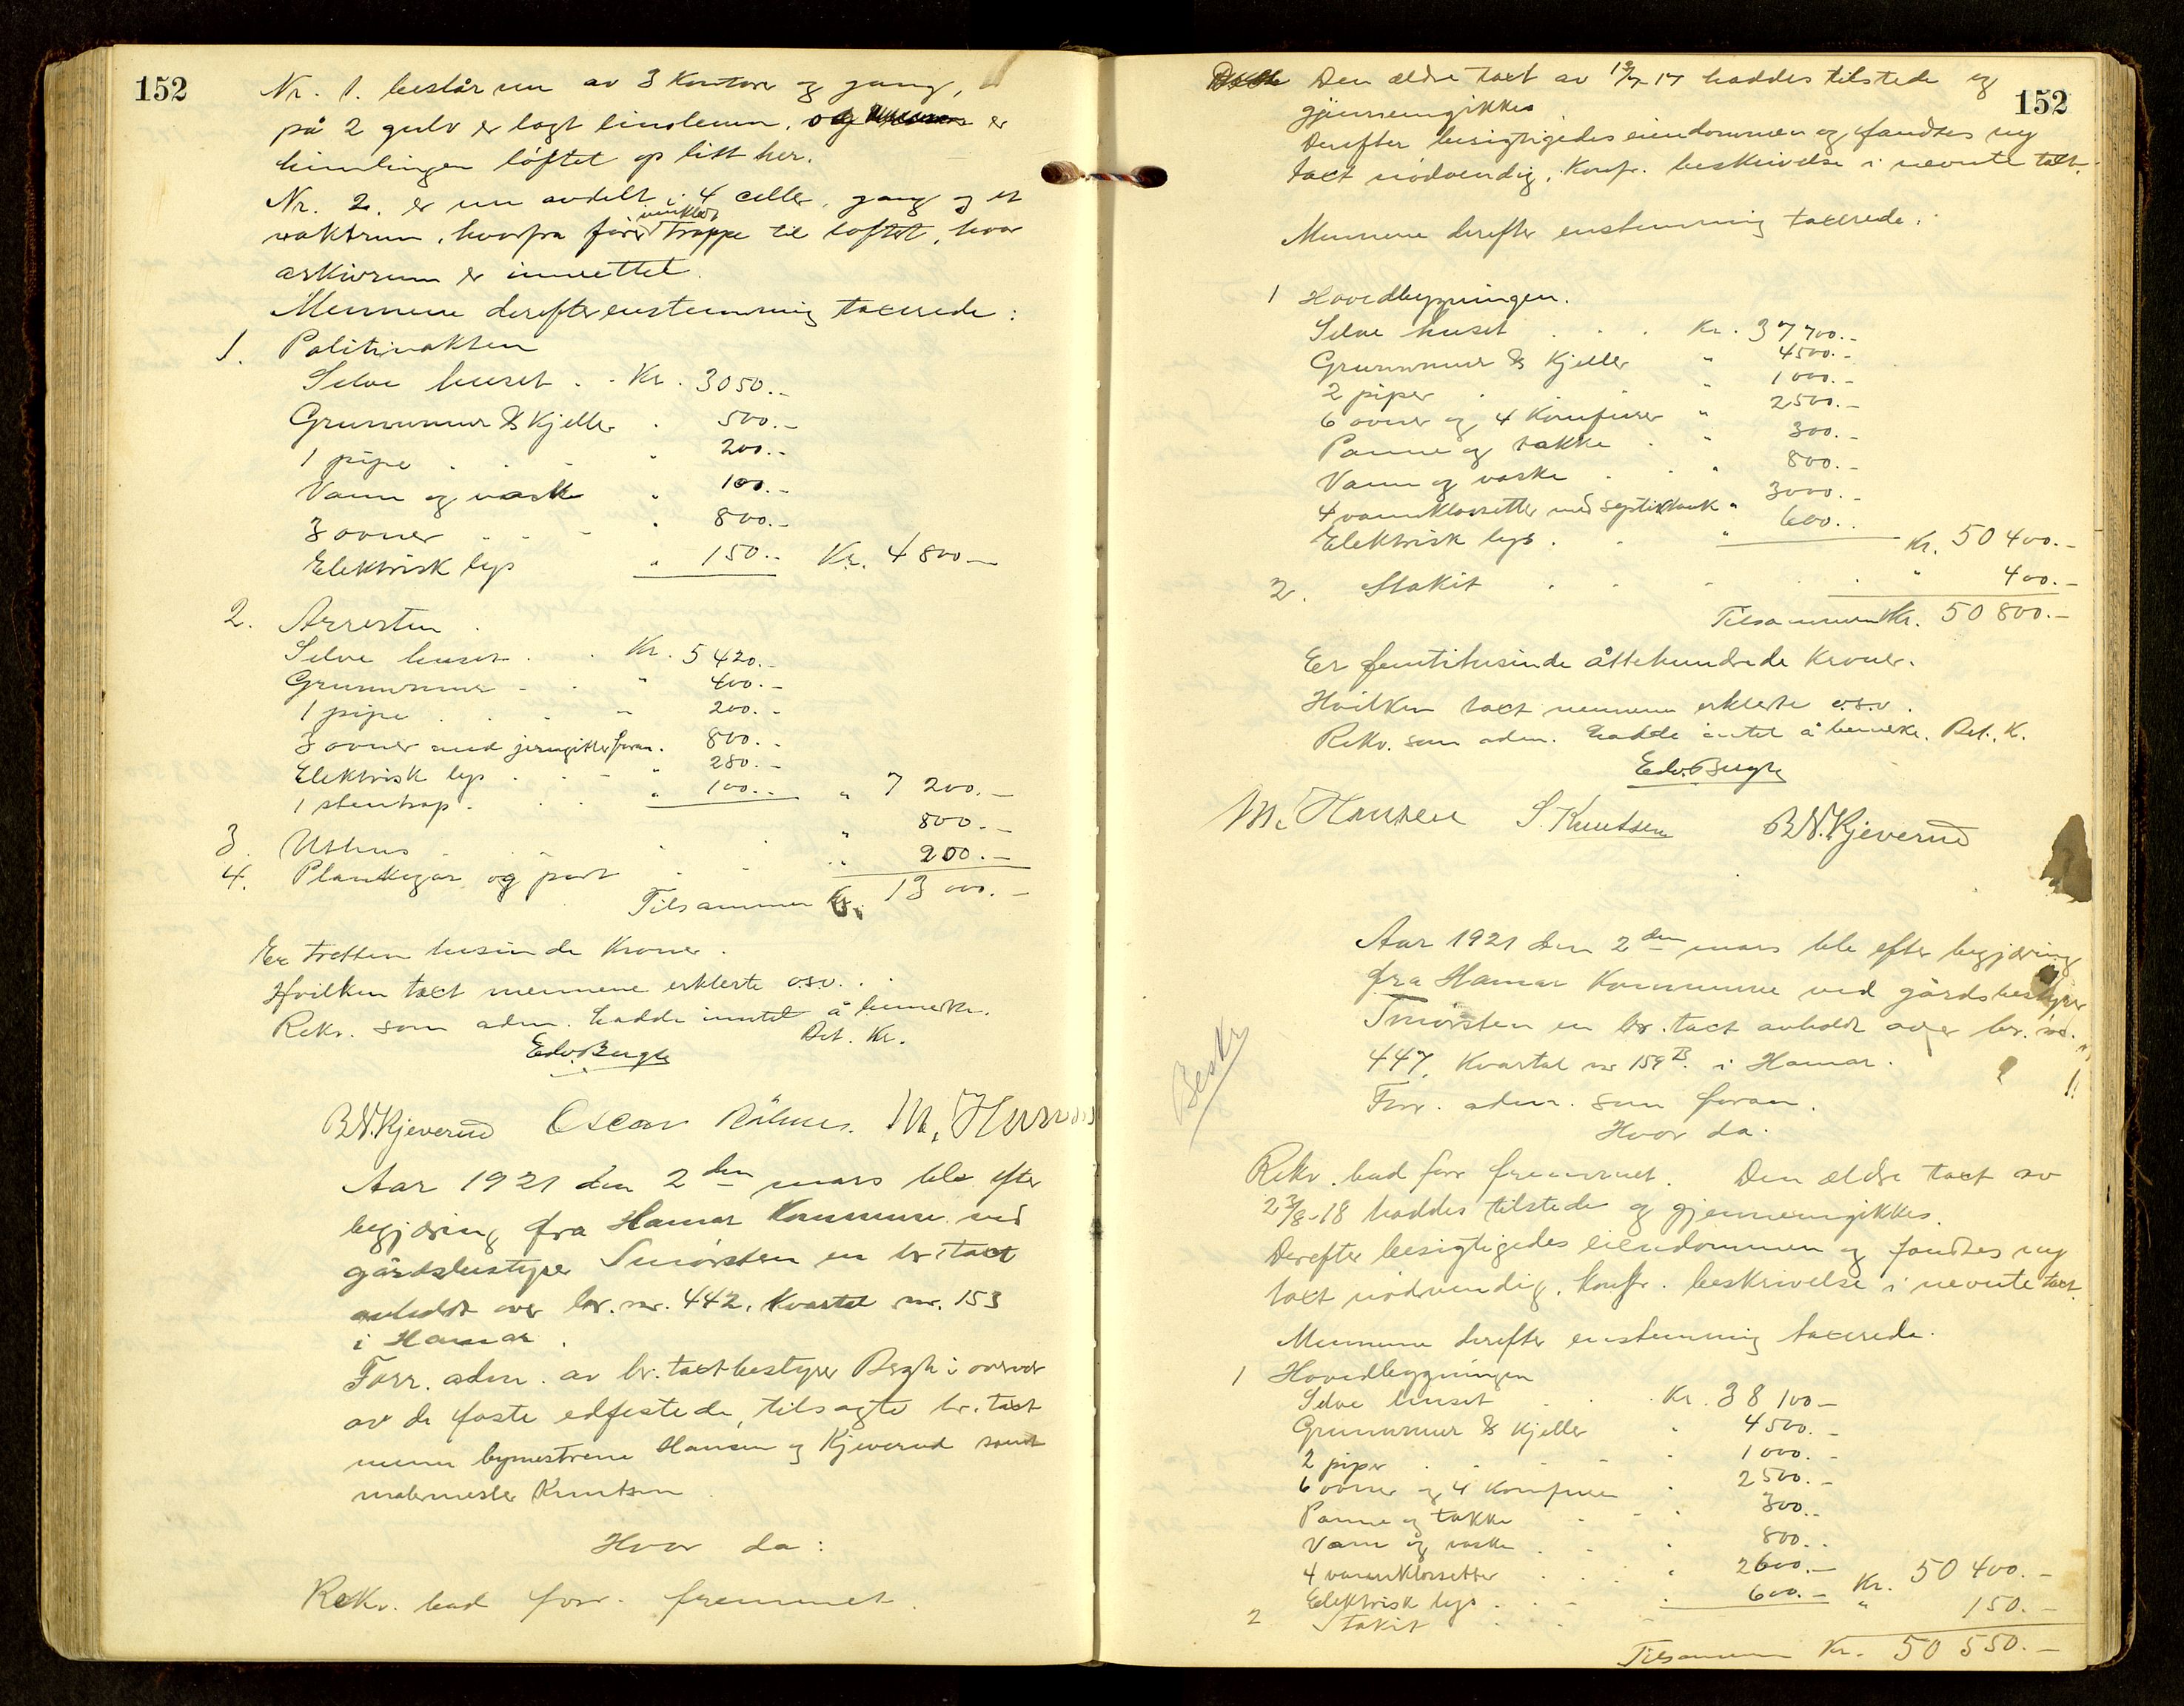 152
Nr. 1. består nu av 3 kontorer og gang,
på 2 gulv er lagt linoleum, og er
himlingen løftet op litt her.
Nr. 2. er nu avdelt i 4 celler, gang og et
vaktrum, hvorfra fører innklædt trappe til loftet, hvor
arkivrum er innrettet.
Mennene derefter enstemmig taxerede:
1. Politivakten
Selve huset . . Kr. 3050.-
Grunnmur & kjeller . 500.-
1 pipe . . . " 200.-
Vann og vask " 100.-
3 ovner . . . " 800.-
Elektrisk lys " 150.- Kr. 4800.-
2. Arresten.
Selve huset . . Kr. 5420.-
Grunnmur . . " 400.-
1 pipe . . . " 200.-
3 ovner med jerngitter foran. 800.-
Elektrisk lys . . . " 280.-
1 stentrap. . . " 100.- " 7200.-
3. Uthus . . . " 800.-
4. Plankegjær og port . . " 200.-
Tilsammen Kr. 13000.-
Er tretten tusinde Kroner.
Hvilken taxt mennene erklerte o.s.v. .
Rekv. som adm. hadde inntet å bemerke.
Bet. Kr.
Edv. Bergh
B.N. Kjeverud Oscar M. Hansen
Aar 1921 den 2den mars ble efter
begjæring fra Hamar Kommune ved
gårdsbestyrer Smørsten en br. taxt
avholdt over br. nr. 442, Kvartal nr. 153
i Hamar.
Forr. adm. av br. taxtbestyrer Bergh i overvær
av de faste edfestede, tilsagte br. taxt
menn bymestrene Hansen og Kjeverud samt
malermester Knutsen.
Hvor da:
Rekv. bad forr. fremmet.
152
Den ældre taxt av 12/7 17 haddes tilstede og
gjennemgikkes
Derefter besigtigedes eiendommen og fandtes ny
taxt nødvendig. Konfr. beskrivelse i nevnte taxt.
Mennene derefter enstemmig taxerede:
1 Hovedbygningen.
Selve huset . . . Kr. 37700.-
Grunnmur & Kjeller " 4500.-
2 piper . . " 1000.-
6 ovner og 4 Komfurer " 2500.-
Panne og takke . " 300.-
Vann og vaske . . " 800.-
4 vannklossetter med septiktank " 3000.-
Elektrisk lys . . " 600.- Kr. 50400.-
2. Stakit . . . . " 400.-
Tilsammen Kr. 50800.-
Er femtitusinde åttehundrede Kroner.
Hvilken taxt mennene erklerte o.s.v.
Rekv. som adm. hadde intet å bemerke. Bet. K.
Edv. Bergh
M. Hansen S. Knutsen B.N. Kjeverud
Aar 1921 den 2den mars ble efter begjæring
fra Hamar Kommune ved gårdsbestyrer
Smørsten en br. taxt avholdt over br. nr.
447, Kvartal nr 159 B. i Hamar.
Forr. adm. som foran.
Hvor da.
Beskr
Rekv. bad forr fremmet. Den ældre taxt av
23/8-18 haddes tilstede og gjennemgikkes.
Derefter besigtigedes eiendommen og fandtes ny
taxt nødvendig. Konfr. beskrivelse i nevnte taxt.
Mennene derefter enstemmig taxerede.
1 Hovedbygningen
Selve huset . . Kr. 38100.-
Grunnmur & Kjeller " 4500.-
2 piper . . . . " 1000.-
6 ovner og 4 Komfurer . 2500.-
Panne og takke . . . 300.-
Vann og vaske . . . 800.-
4 vannklossetter . . . " 2600.-
Elektrisk lys . . . . 600.- Kr. 50400.-
2 Stakit . . . " 150.-
Tilsammen Kr. 50550.-